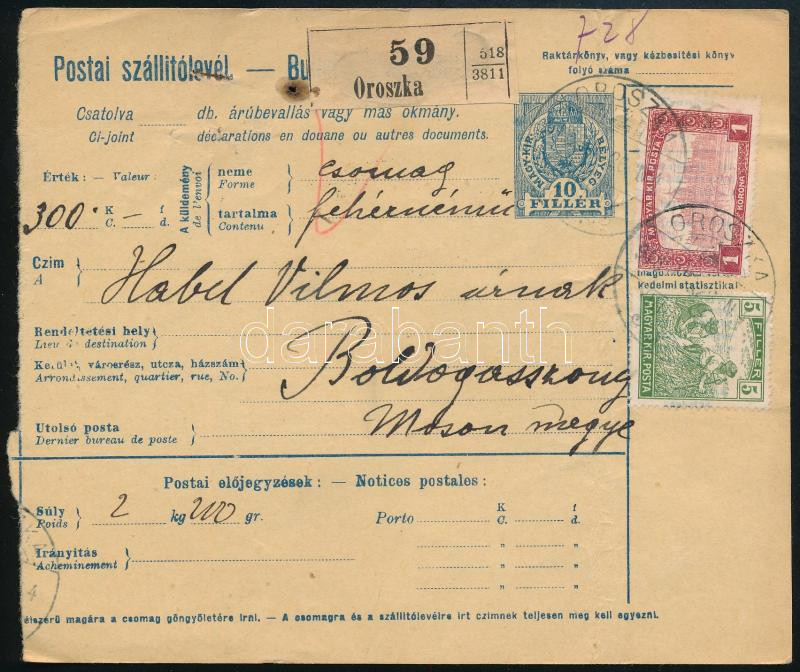 728
59
Oroszka
518
3811
Postai szállitólevél. — Bu
Raktárkönyv, vagy kézbesitési könyv
folyó száma
Csatolva db. árúbevallás vagy más okmány.
Ci-joint déclarations en douane ou autres documents.
Érték: - Valeur:
K f
300 · —
C. d.
A küldemény
de l'envoi
neme
Forme
csomag
tartalma
Contenu
fehérnemü
MAGY. KIR. BÉLYEG
10
FILLÉR
OROSZKA
MAGYAR KIR. POSTA
KORONA
1
1
OROSZKA
kedelmi statisztikai
5 FILLÉR 5
MAGYAR KIR. POSTA
Czim
A
Habel Vilmos úrnak
Rendeltetési hely
Lieu de destination
Boldogasszony
Kerület, városrész, utcza, házszám
Arrondissement, quartier, rue, No.
Utolsó posta
Dernier bureau de poste
Moson megye
darabanth
Postai előjegyzések: — Notices postales:
Súly
Poids
2 kg 200 gr.
Porto
K f
C. d.
" "
" "
" "
Irányitás
Acheminement
4
élszerű magára a csomag göngyöletére irni. — A csomagra és a szállitólevélre irt czimnek teljesen meg kell egyezni.